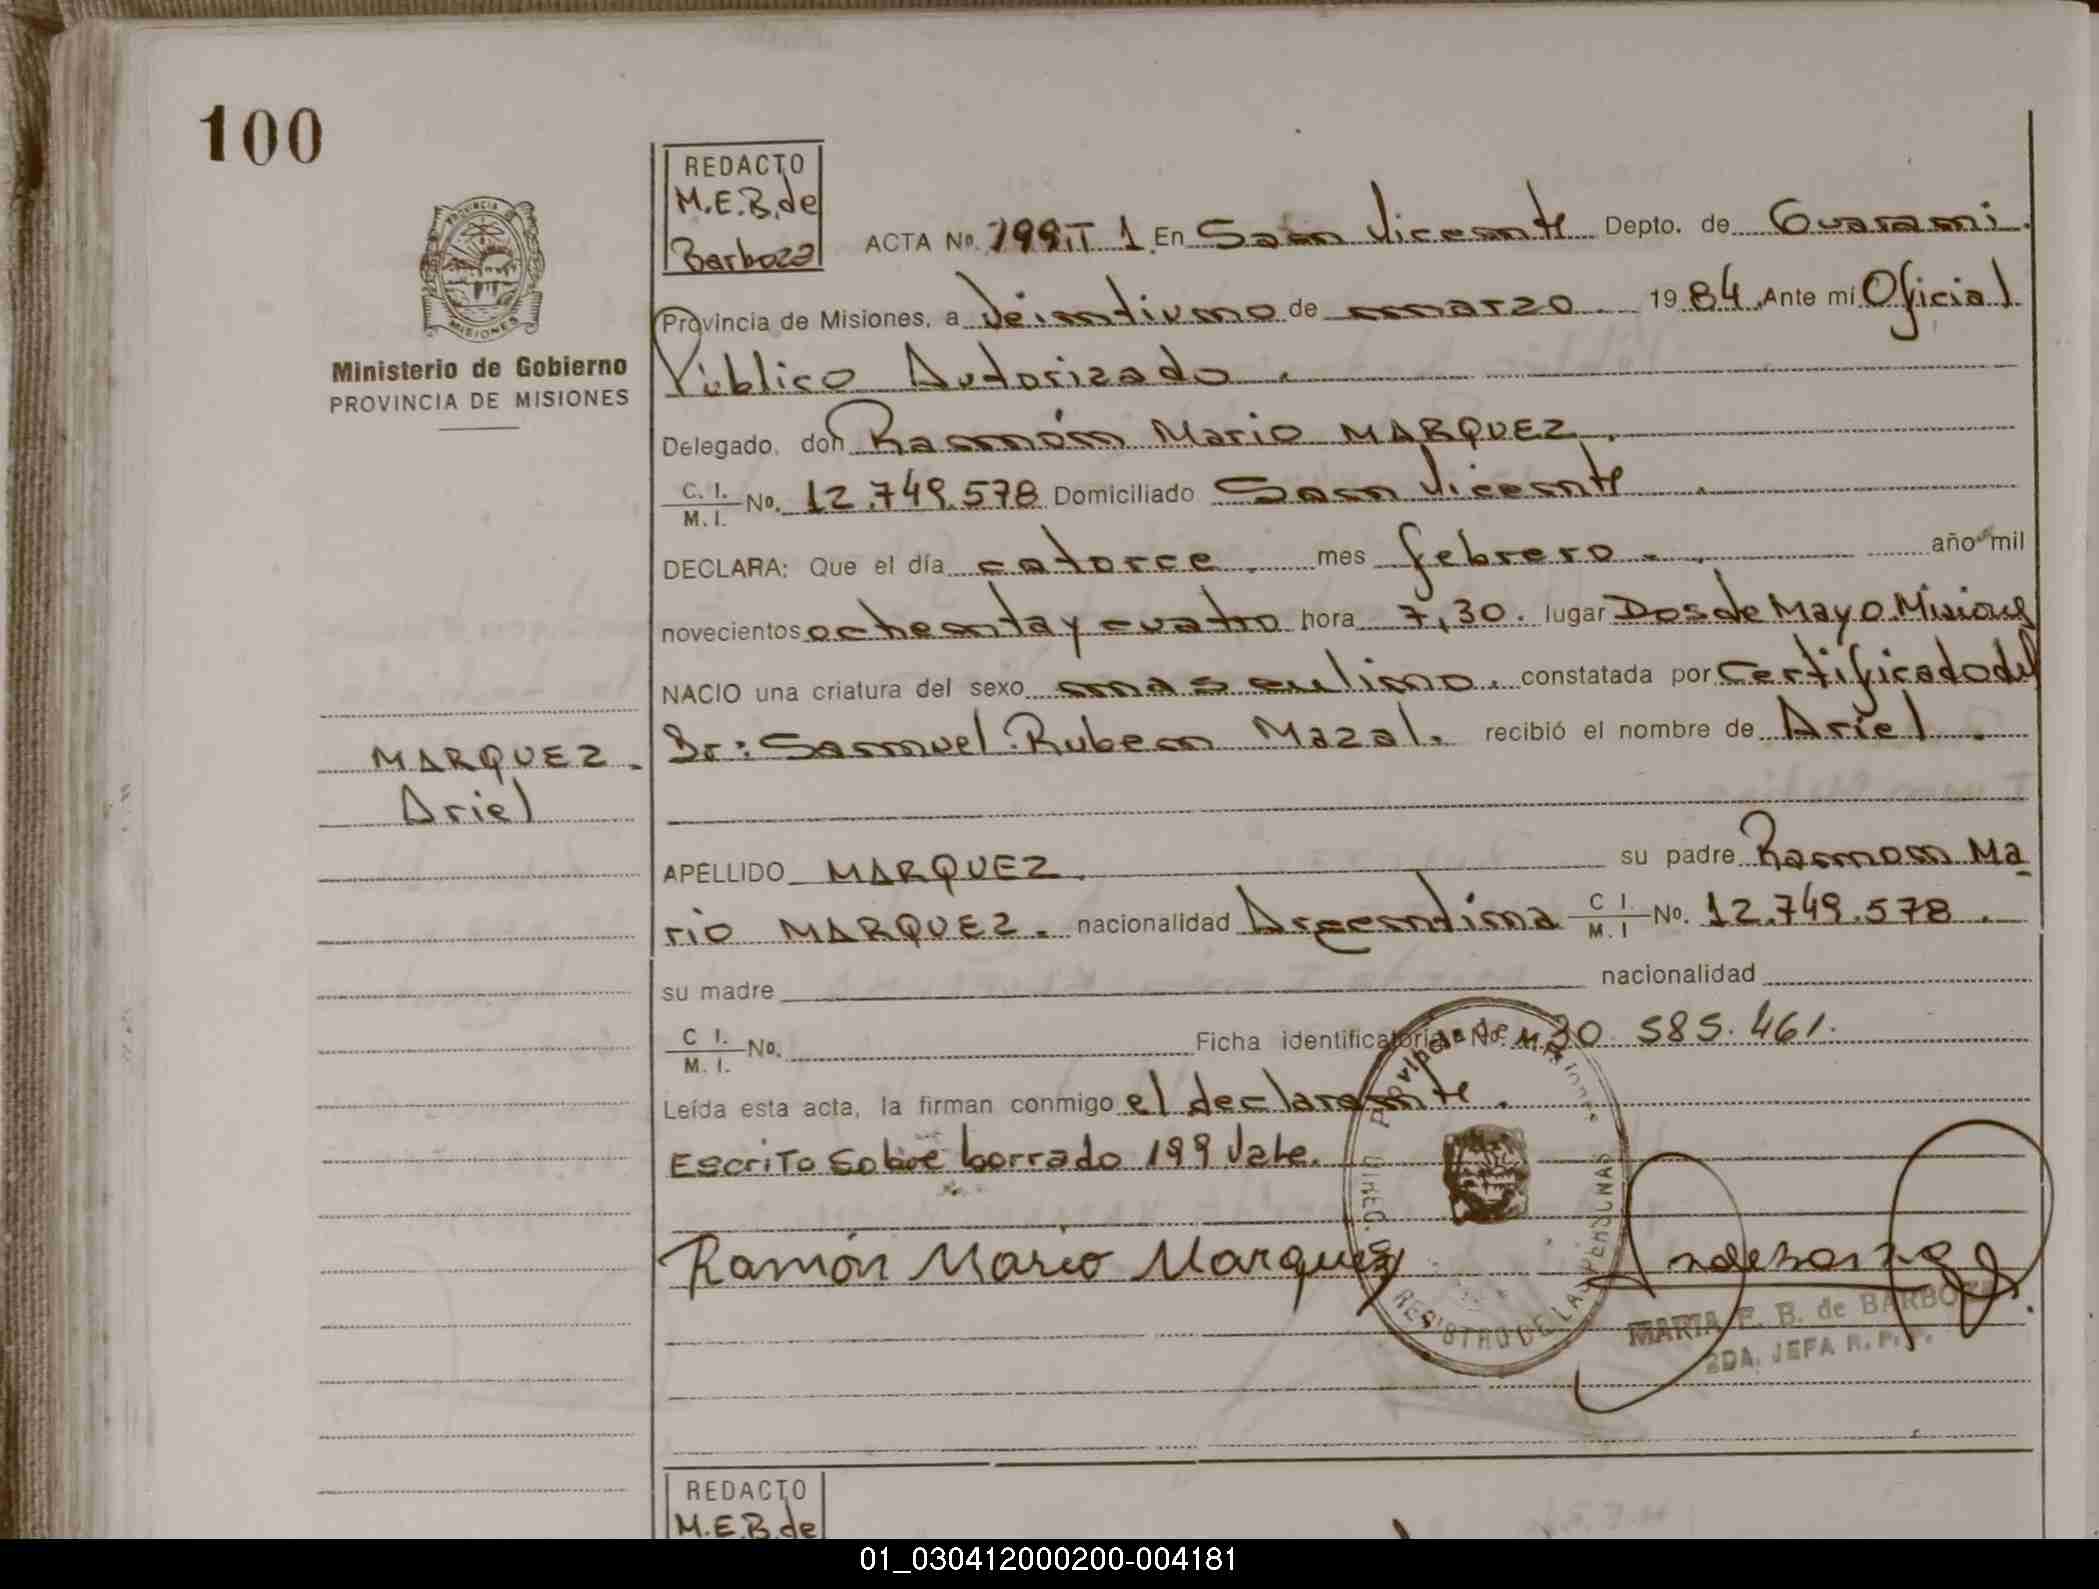 100
REDACTO
M.E.B. de
Barboza
PROVINCIA DE
MISIONES
Ministerio de Gobierno
PROVINCIA DE MISIONES
ACTA No. 199.T 1. En San Vicente Depto. de Guarani.
Provincia de Misiones, a Veintiuno de marzo. 1984. Ante mí Oficial
Público Autorizado.
Delegado, don Ramón Mario MARQUEZ.
C. I. / M. I. No. 12.749.578 Domiciliado San Vicente.
DECLARA: Que el día catorce. mes febrero. año mil
novecientos ochenta y cuatro hora 7,30. lugar Dos de Mayo. Misiones
NACIO una criatura del sexo masculino. constatada por Certificado del
Dr: Samuel Ruben Mazal. recibió el nombre de Ariel.
MARQUEZ.
Ariel
APELLIDO MARQUEZ. su padre Ramon Ma
rio MARQUEZ. nacionalidad Argentina C I. / M. I No. 12.749.578.
su madre nacionalidad
C I. / M. I. No. Ficha identificatoria No. 30.585.461.
Leída esta acta, la firman conmigo el declarante.
Escrito sobre borrado 199 Vale.
Provincia de Misiones
REGISTRO DE LAS PERSONAS
Ramón Mario Marquez
MARIA E. B. de BARBOZA
2DA. JEFA R. P.
REDACTO
M.E.B. de
01_030412000200-004181